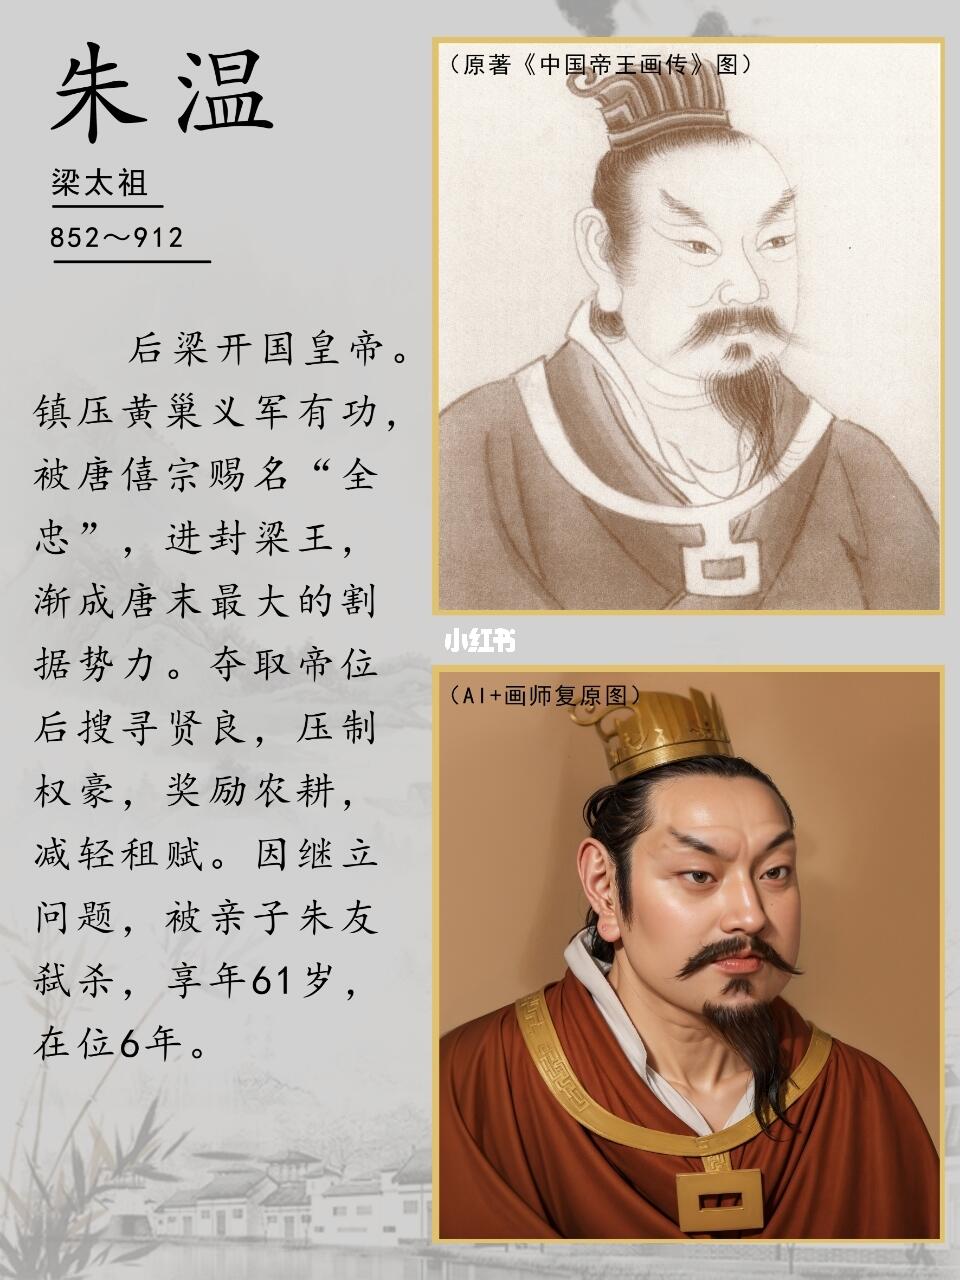 朱温
梁太祖
852～912
后梁开国皇帝。
镇压黄巢义军有功，
被唐僖宗赐名“全
忠”，进封梁王，
渐成唐末最大的割
据势力。夺取帝位
后搜寻贤良，压制
权豪，奖励农耕，
减轻租赋。因继立
问题，被亲子朱友
弑杀，享年61岁，
在位6年。
（原著《中国帝王画传》图）
小红书
（AI+画师复原图）